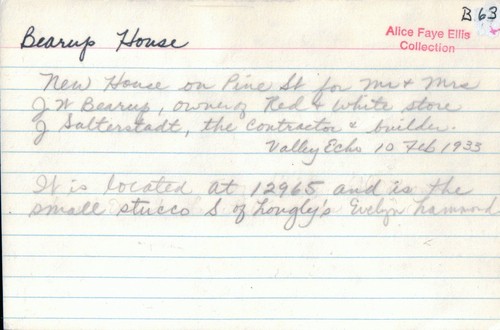 B 63
Alice Faye Ellis
Collection
Bearup House
New House on Pine St for Mr & Mrs
J W Bearup, owner of Red & White store
J Salterstadt, the contractor & builder.
Valley Echo 10 Feb 1933
It is located at 12965 and is the
small stucco S of Longly's Evelyn Hammond